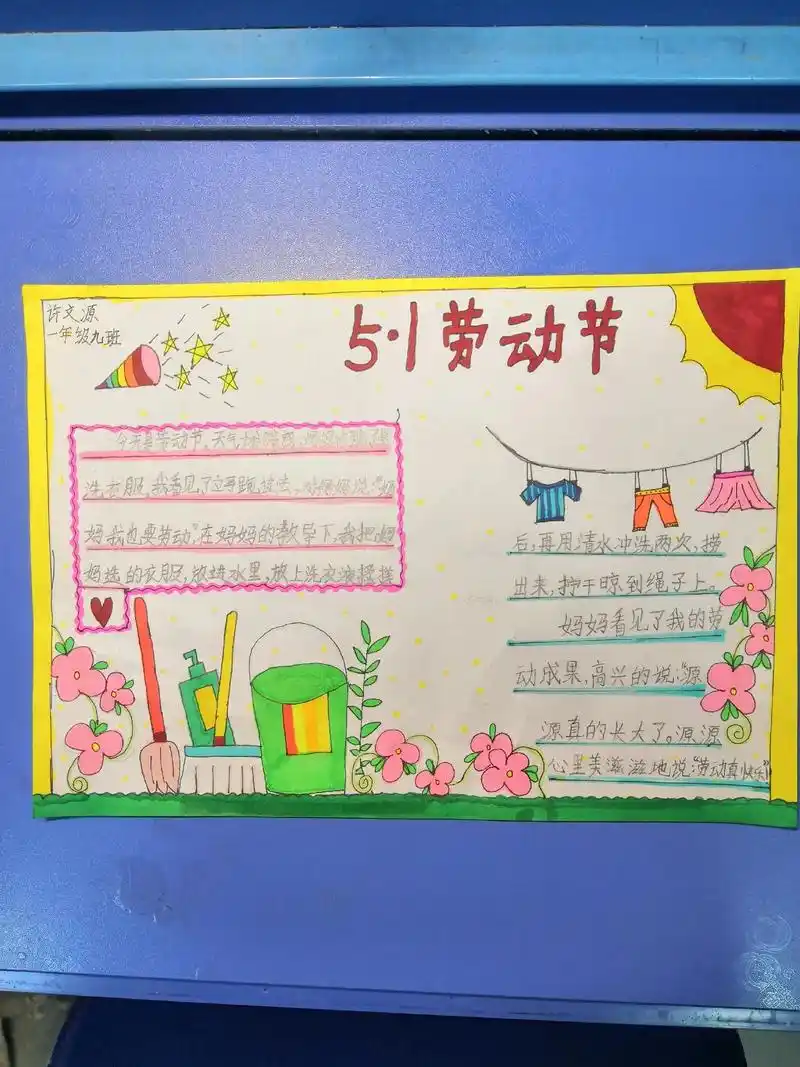 许文源
一年级九班
5·1劳动节
今天是劳动节,天气
洗衣服,我看见了立马跑过去,对妈妈说:“妈
妈我也要劳动”在妈妈的教导下,我把妈
妈选的衣服,放进水里,放上洗衣液揉搓
后,再用清水冲洗两次,捞
出来,拧干晾到绳子上。
妈妈看见了我的劳
动成果,高兴的说:“源
源真的长大了。源源
心里美滋滋地说:“劳动真快乐”